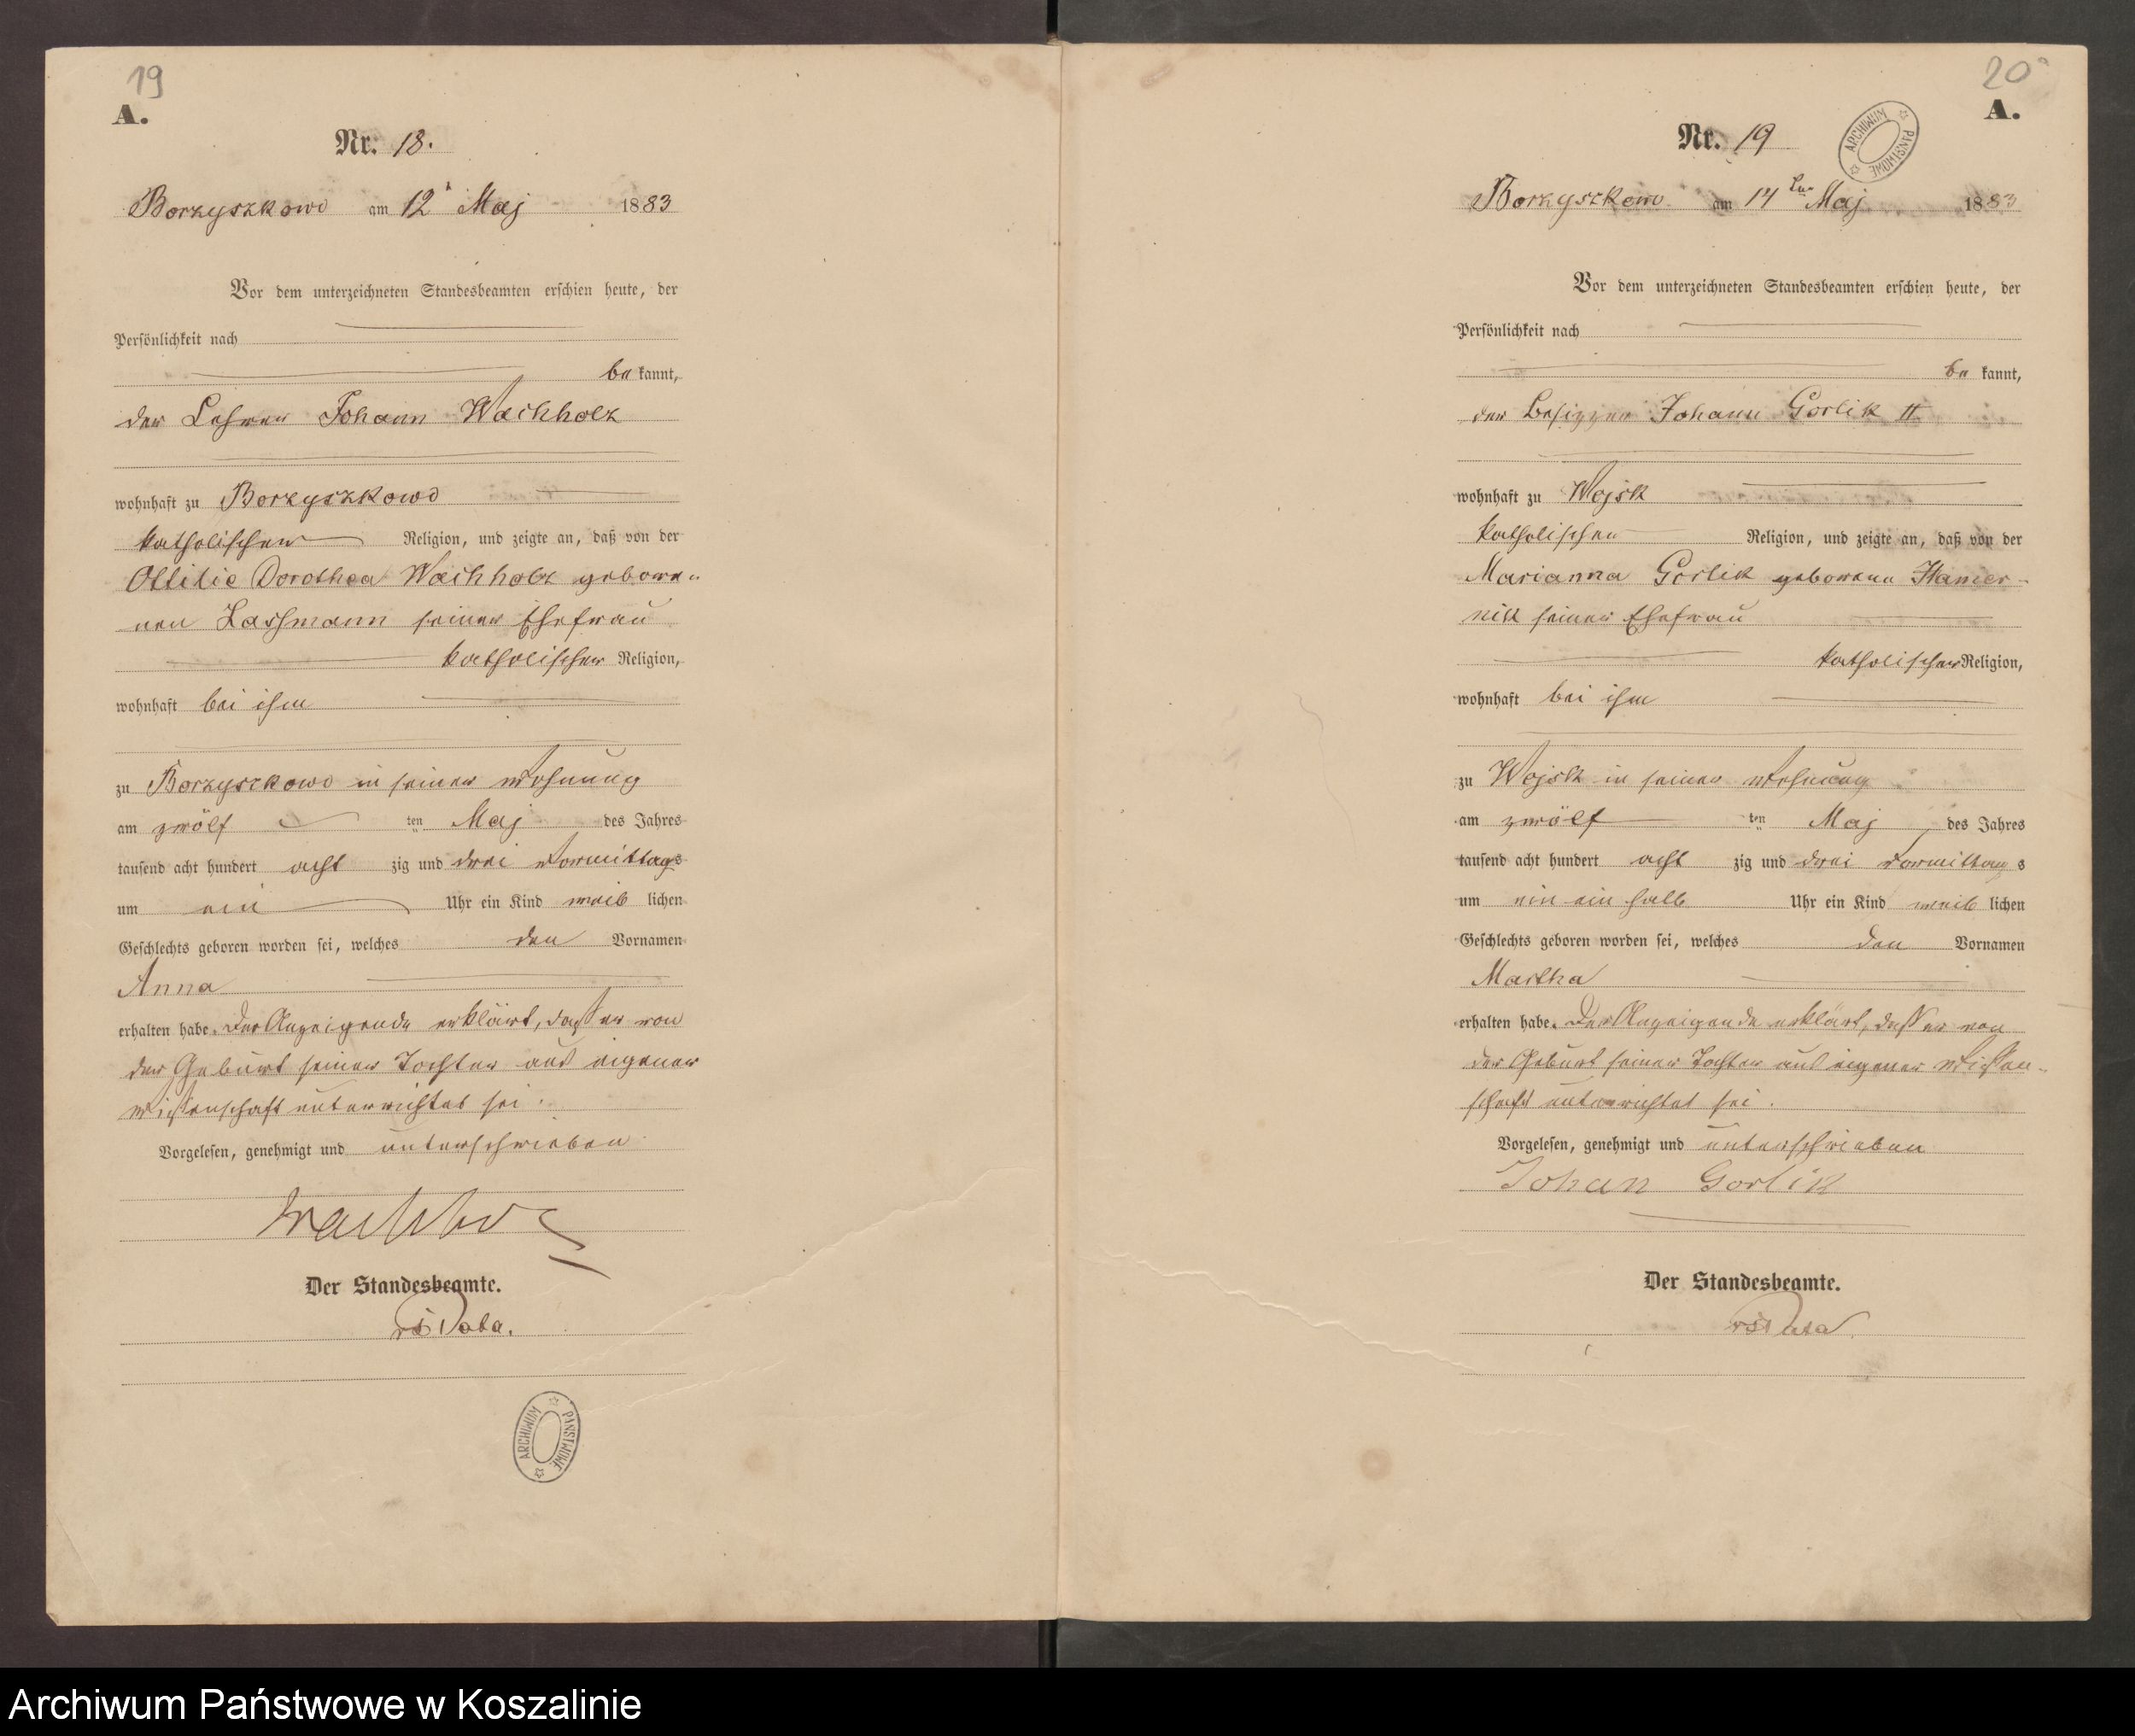 19
A.
Nr. 18.
Borzyszkowo am 12 Maj 1883
Vor dem unterzeichneten Standesbeamten erschien heute, der
Persönlichkeit nach
be kannt,
der Lehrer Johann Wachholz
wohnhaft zu Borzyszkowo
katholischer Religion, und zeigte an, daß von der
Ottilie Dorothea Wachholz gebore-
nen Lassmann seiner Ehefrau
katholischer Religion,
wohnhaft bei ihm
zu Borzyszkowo in seiner Wohnung
am zwölf ten Maj des Jahres
tausend acht hundert acht zig und drei Vormittags
um ein Uhr ein Kind weib lichen
Geschlechts geboren worden sei, welches den Vornamen
Anna
erhalten habe. Der Anzeigende erklärt, daß er von
der Geburt seiner Tochter aus eigener
Wissenschaft unterrichtet sei.
Vorgelesen, genehmigt und unterschrieben
Wachholz
Der Standesbeamte.
ARCHIWUM PAŃSTWOWE
20
A.
Nr. 19
ARCHIWUM PAŃSTWOWE
Borzyszkowo am 14 ten Maj 1883
Vor dem unterzeichneten Standesbeamten erschien heute, der
Persönlichkeit nach
be kannt,
der Besitzer Johann Gorlik II
wohnhaft zu Wojsk
katholischen Religion, und zeigte an, daß von der
Marianna Gorlik geborene Hamer-
nik seiner Ehefrau
katholischer Religion,
wohnhaft bei ihm
zu Wojsk in seiner Wohnung
am zwölf ten Maj des Jahres
tausend acht hundert acht zig und drei Vormittag s
um ein ein halb Uhr ein Kind weib lichen
Geschlechts geboren worden sei, welches den Vornamen
Martha
erhalten habe. Der Anzeigende erklärt, daß er von
der Geburt seiner Tochter aus eigener Wissen-
schaft unterrichtet sei.
Vorgelesen, genehmigt und unterschrieben
Johan Gorlik
Der Standesbeamte.
Archiwum Państwowe w Koszalinie